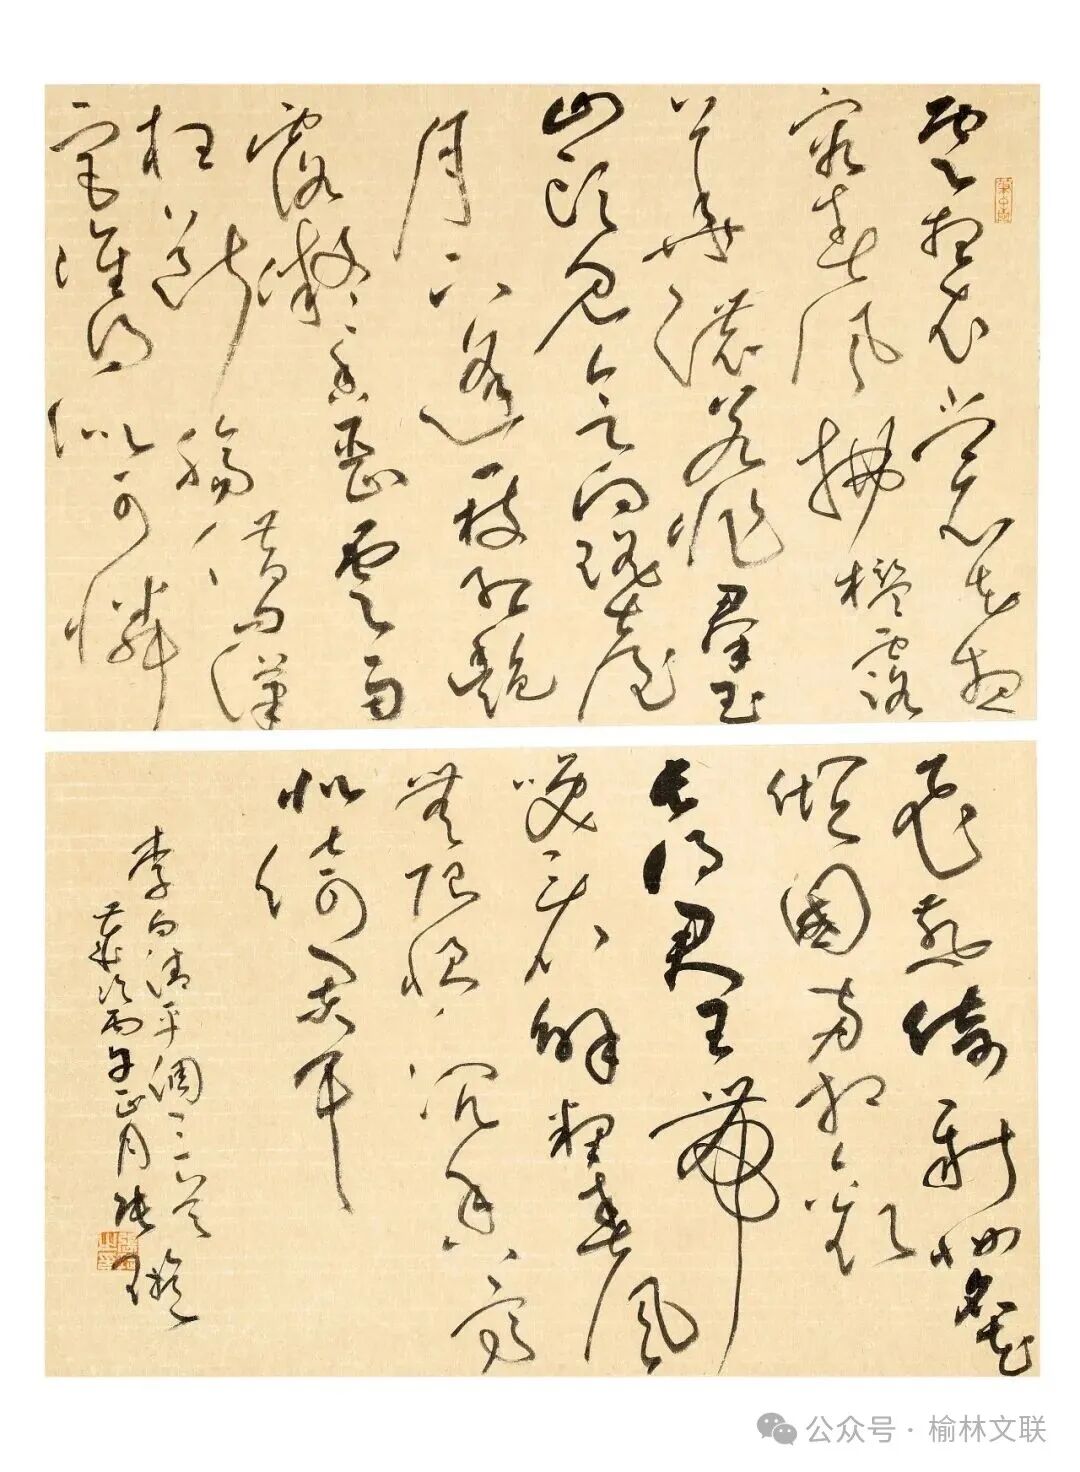 雲想衣裳花想
容春風拂檻露
華濃若非群玉
山頭見會向瑤臺
月下逢一枝紅艷
露凝香雲雨
枉斷腸借問漢
宮誰得似可憐
飛燕倚新妝名花
傾國兩相歡
長得君王帶
笑看解釋春風
無限恨沉香亭
北倚闌干
李白清平調三首
歲次丙午正月張璇
公众号 · 榆林文联